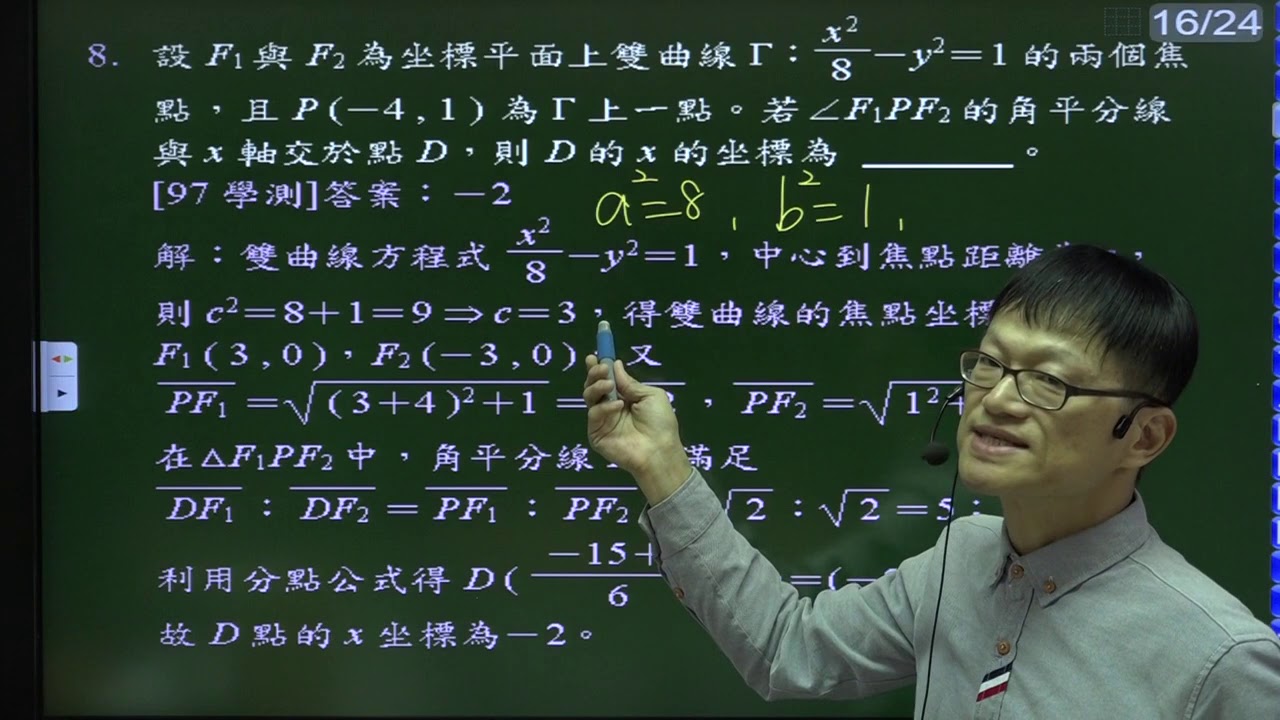 16/24
8. 設 F₁ 與 F₂ 為坐標平面上雙曲線 Γ：x²/8－y²＝1 的兩個焦
點，且 P(−4, 1) 為 Γ 上一點。若 ∠F₁PF₂ 的角平分線
與 x 軸交於點 D，則 D 的 x 的坐標為 ________。
[97 學測]答案：−2
a²=8, b²=1,
解：雙曲線方程式 x²/8－y²＝1，中心到焦點距離
則 c²＝8＋1＝9⇒c＝3，得雙曲線的焦點坐標
F₁(3, 0)，F₂(−3, 0) 又
PF₁＝√((3＋4)²＋1)＝ ，PF₂＝√(1²＋
在 △F₁PF₂ 中，角平分線 滿足
DF₁：DF₂＝PF₁：PF₂ √2：√2＝5：
利用分點公式得 D( −15＋ /6 ＝(−
故 D 點的 x 坐標為−2。